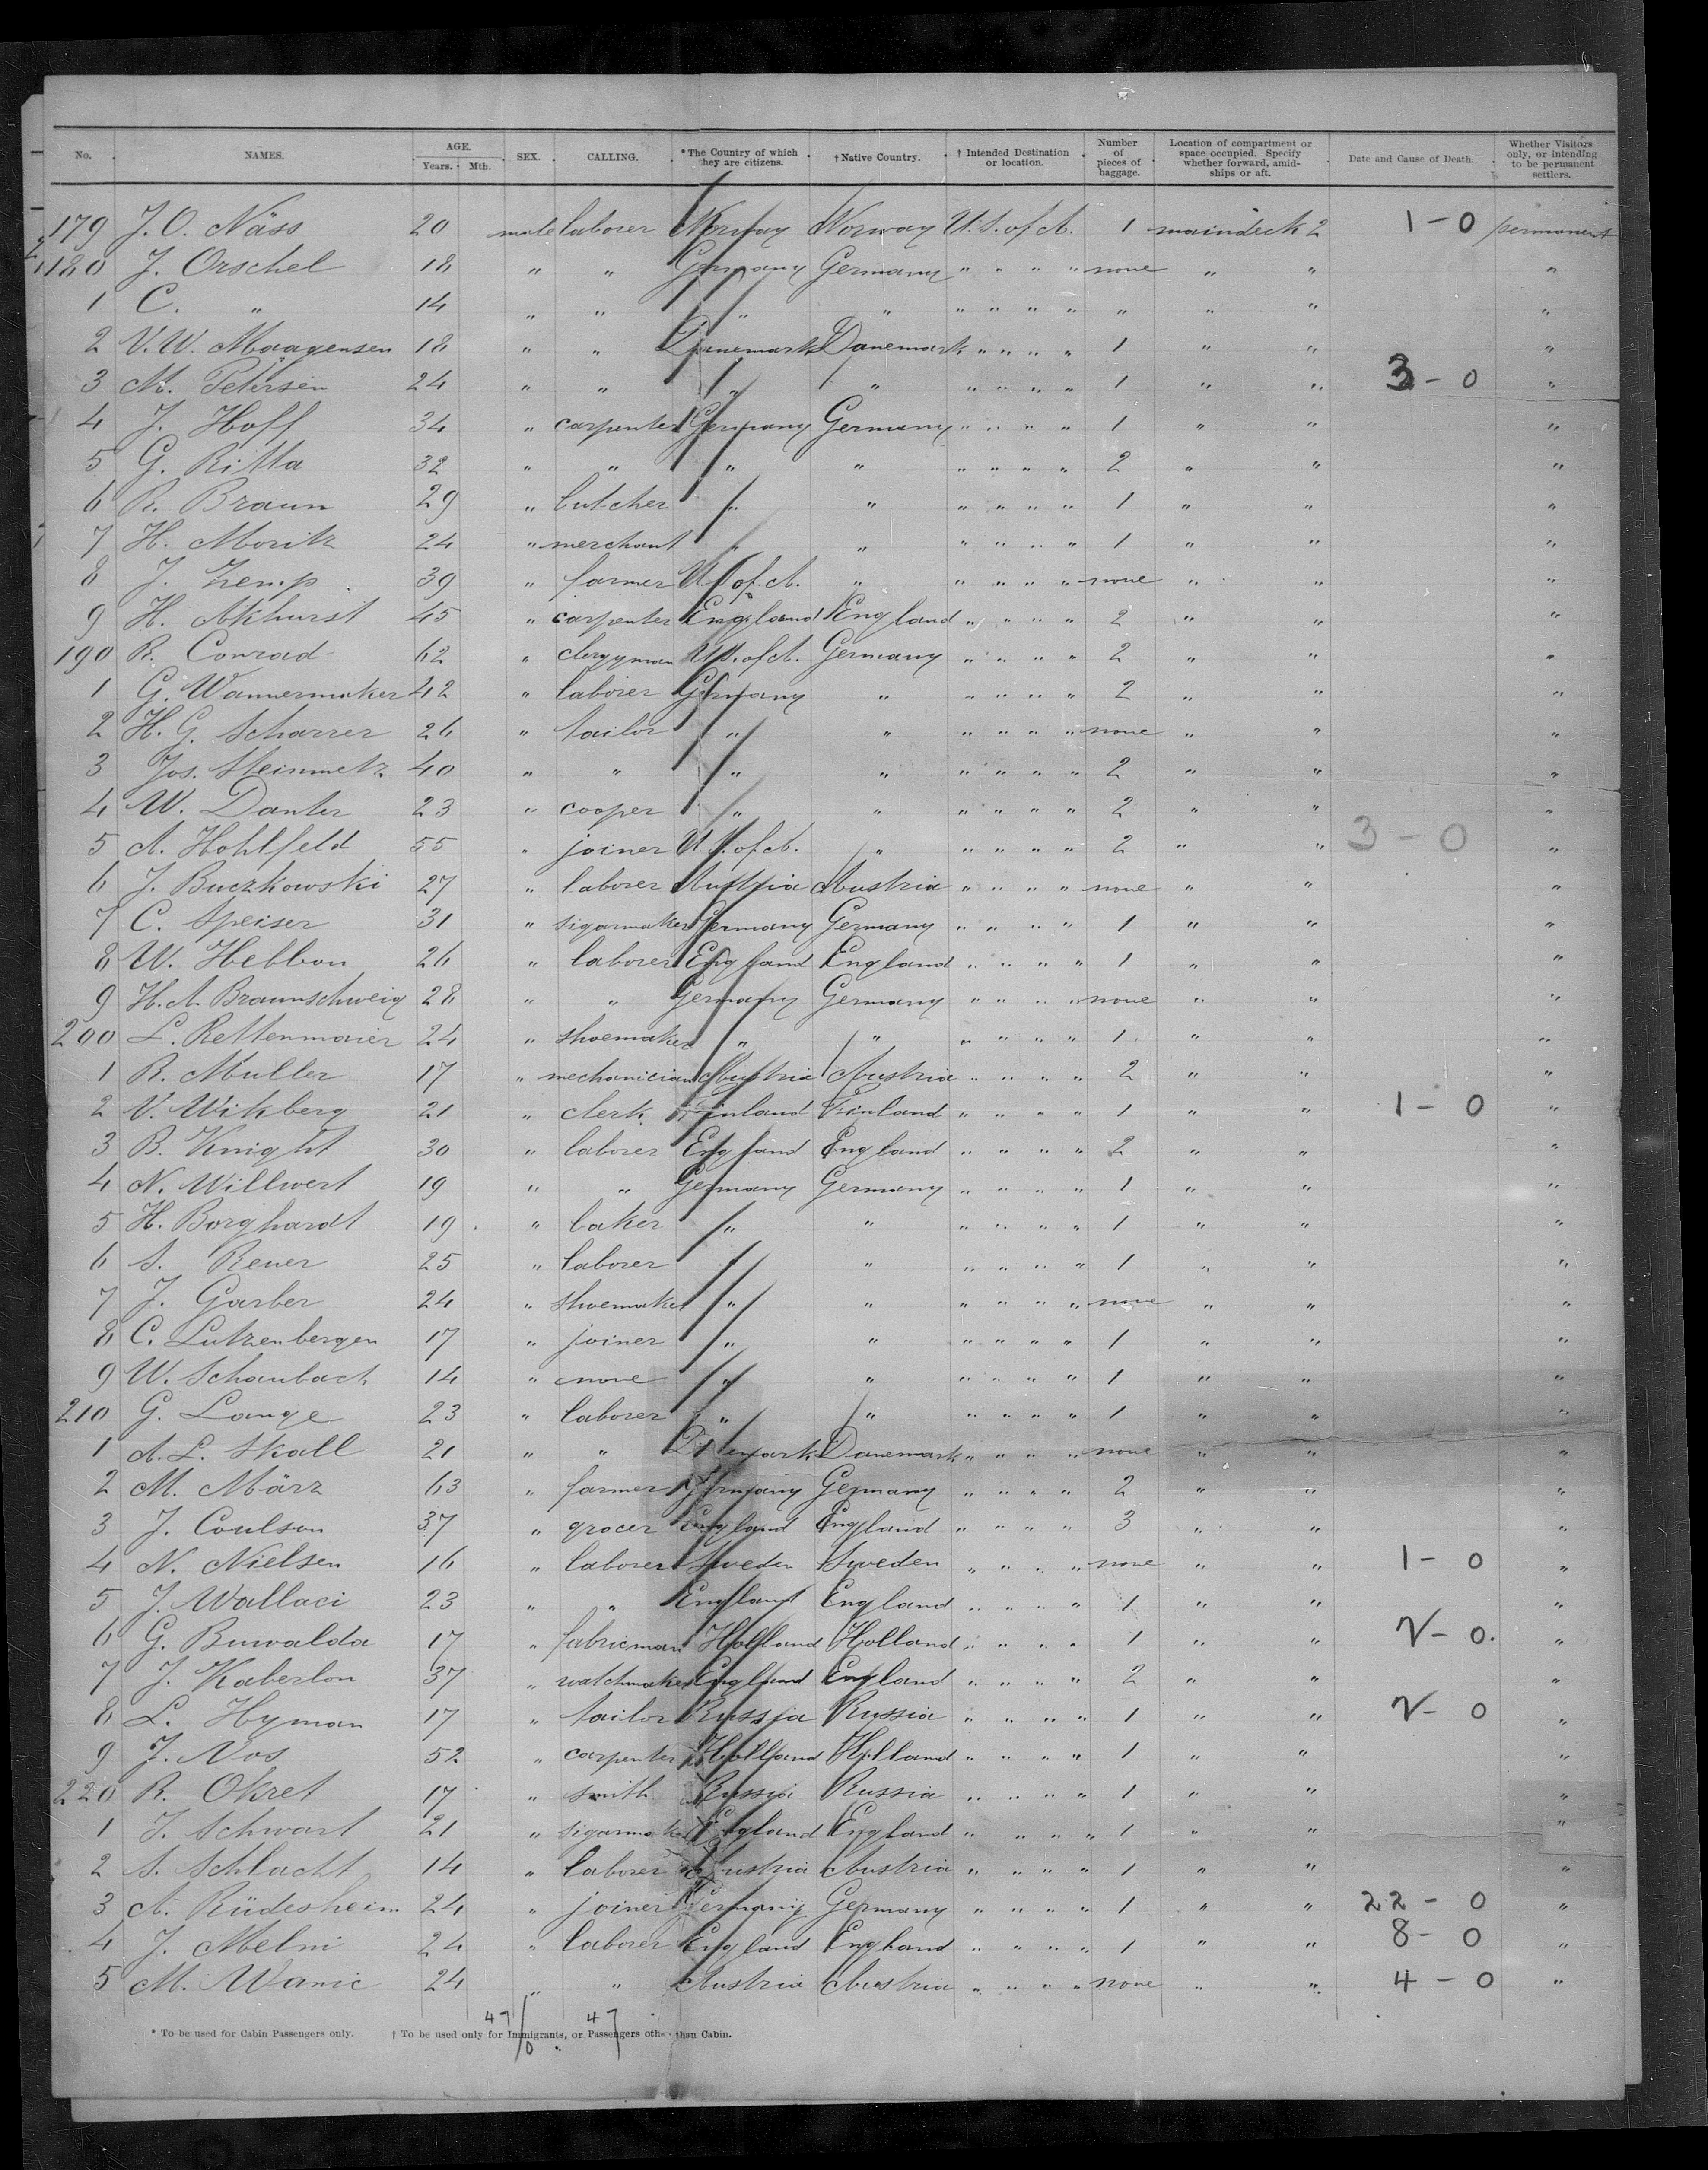 No. NAMES. AGE. Years. Mth. SEX. CALLING. *The Country of which they are citizens. †Native Country. †Intended Destination or location. Number of pieces of baggage. Location of compartment or space occupied. Specify whether forward, amidships or aft. Date and Cause of Death. Whether Visitors only, or intending to be permanent settlers.
179 J. O. Näss 20 male laborer Norway Norway U. S. of A. 1 maindeck 2 1 - 0 permanent
180 J. Orschel 18 " " Germany Germany " " " " none " " "
1 C. " 14 " " " " " " " " " " " "
2 V. W. Maagensen 18 " " Danemark Danemark " " " " 1 " " "
3 M. Petersen 24 " " " " " " " " 1 " " 3 - 0 "
4 J. Hoff 34 " carpenter Germany Germany " " " " 1 " " "
5 G. Ritta 32 " " " " " " " " 2 " " "
6 R. Braun 29 " butcher " " " " " " 1 " " "
7 H. Moritz 24 " merchant " " " " " " 1 " " "
8 J. Zemp 39 " farmer U. S. of A. " " " " " none " " "
9 H. Akhurst 45 " carpenter England England " " " " 2 " " "
190 R. Conrad 62 " clergyman U. S. of A. Germany " " " " 2 " " "
1 G. Wannermaker 42 " laborer Germany " " " " " 2 " " "
2 H. G. Scharrer 26 " tailor " " " " " " none " " "
3 Jos. Steinmetz 40 " " " " " " " " 2 " " "
4 W. Danter 23 " cooper " " " " " " 2 " " "
5 A. Hohlfeld 55 " joiner U. S. of A. " " " " " 2 " " 3 - 0 "
6 J. Buczkowski 27 " laborer Austria Austria " " " " none " " "
7 C. Speiser 31 " sigarmaker Germany Germany " " " " 1 " " "
8 W. Hebbon 26 " laborer England England " " " " 1 " " "
9 H. A. Braunschweig 28 " " Germany Germany " " " " none " " "
200 L. Rettenmaier 24 " shoemaker " " " " " " 1 " " "
1 R. Muller 17 " mechanician Austria Austria " " " " 2 " " "
2 V. Wikberg 21 " clerk Finland Finland " " " " 1 " " 1 - 0 "
3 B. Knight 30 " laborer England England " " " " 2 " " "
4 N. Willwert 19 " " Germany Germany " " " " 1 " " "
5 H. Borghardt 19 " baker " " " " " " 1 " " "
6 S. Reuer 25 " laborer " " " " " " 1 " " "
7 J. Garber 24 " shoemaker " " " " " " none " " "
8 C. Lutzenbergen 17 " joiner " " " " " " 1 " " "
9 W. Schaubach 14 " none " " " " " " 1 " " "
210 G. Lange 23 " laborer " " " " " " 1 " " "
1 A. L. Skall 21 " " Danemark Danemark " " " " none " " "
2 M. März 63 " farmer Germany Germany " " " " 2 " " "
3 J. Coulson 37 " grocer England England " " " " 3 " " "
4 N. Nielsen 16 " laborer Sweden Sweden " " " " none " " 1 - 0 "
5 J. Wallaci 23 " " England England " " " " 1 " " "
6 G. Buwalda 17 " fabricman Holland Holland " " " " 1 " " 2 - 0. "
7 J. Kaberlon 37 " watchmaker England England " " " " 2 " " "
8 L. Hyman 17 " tailor Russia Russia " " " " 1 " " 2 - 0 "
9 J. Vos 52 " carpenter Holland Holland " " " " 1 " " "
220 R. Okret 17 " smith Russia Russia " " " " 1 " " "
1 J. Schwart 21 " sigarmaker England England " " " " 1 " " "
2 S. Schlacht 14 " laborer Austria Austria " " " " 1 " " "
3 A. Rüdesheim 24 " joiner Germany Germany " " " " 1 " " 22 - 0 "
4 J. Melni 24 " laborer England England " " " " 1 " " 8 - 0 "
5 M. Wanic 24 " " Austria Austria " " " " none " " 4 - 0 "
47/0 47
* To be used for Cabin Passengers only. † To be used only for Immigrants, or Passengers other than Cabin.